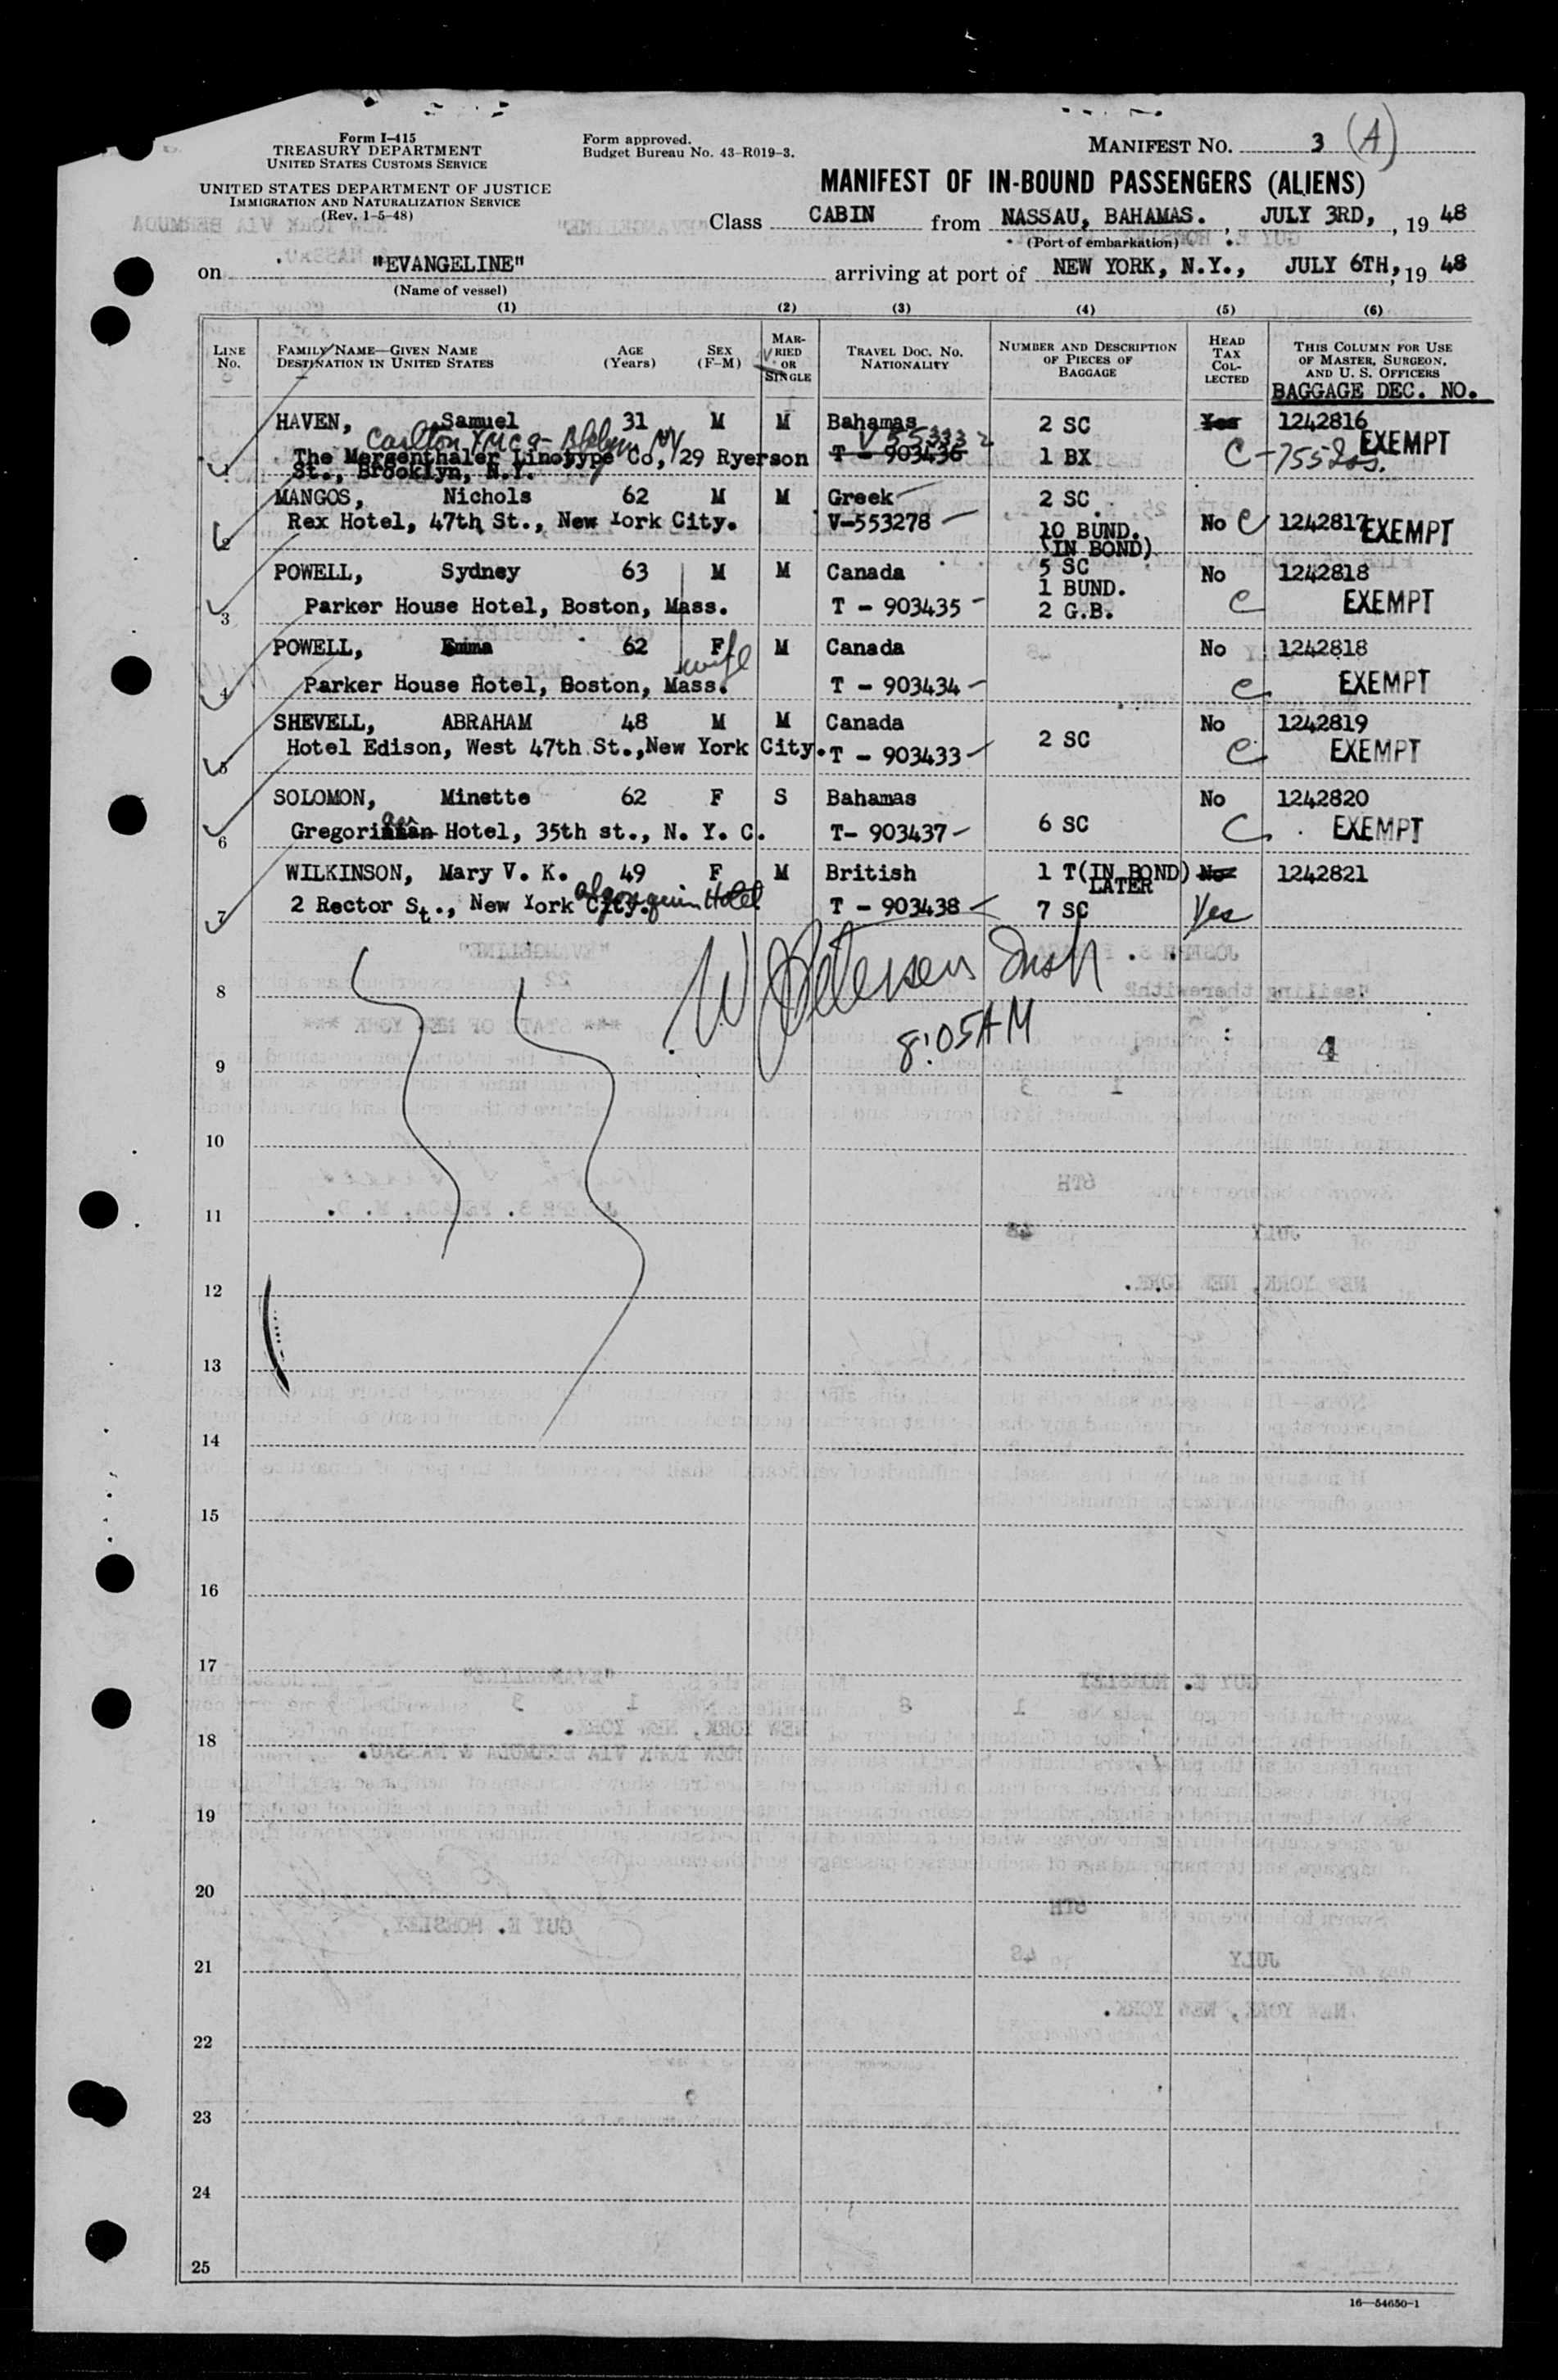 Form I-415
TREASURY DEPARTMENT
UNITED STATES CUSTOMS SERVICE
UNITED STATES DEPARTMENT OF JUSTICE
IMMIGRATION AND NATURALIZATION SERVICE
(Rev. 1-5-48)
Form approved.
Budget Bureau No. 43-R019-3.
MANIFEST NO. 3 (A)
MANIFEST OF IN-BOUND PASSENGERS (ALIENS)
Class CABIN from NASSAU, BAHAMAS. , JULY 3RD, , 19 48
(Port of embarkation)
on "EVANGELINE" arriving at port of NEW YORK, N.Y., JULY 6TH, 19 48
(Name of vessel)
(1) (2) (3) (4) (5) (6)
LINE NO. FAMILY NAME—GIVEN NAME DESTINATION IN UNITED STATES AGE (Years) SEX (F-M) MARRIED OR SINGLE TRAVEL DOC. NO. NATIONALITY NUMBER AND DESCRIPTION OF PIECES OF BAGGAGE HEAD TAX COLLECTED THIS COLUMN FOR USE OF MASTER, SURGEON, AND U. S. OFFICERS
BAGGAGE DEC. NO.
HAVEN, Samuel 31 M M Bahamas 2 SC Yes 1242816
Carlton YMCA- NY V 553332 EXEMPT
The Mergenthaler Linotype Co, 29 Ryerson T - 903436 1 BX C-
1 St., Brooklyn, N.Y.
MANGOS, Nichols 62 M M Greek 2 SC
2 Rex Hotel, 47th St., New York City. V-553278 10 BUND. No C 1242817 EXEMPT
(IN BOND)
POWELL, Sydney 63 M M Canada 5 SC No 1242818
1 BUND.
3 Parker House Hotel, Boston, Mass. T - 903435 2 G.B. C EXEMPT
POWELL, Emma 62 F M Canada No 1242818
wife
4 Parker House Hotel, Boston, Mass. T - 903434 C EXEMPT
SHEVELL, ABRAHAM 48 M M Canada No 1242819
5 Hotel Edison, West 47th St., New York City. T - 903433 2 SC C EXEMPT
SOLOMON, Minette 62 F S Bahamas No 1242820
6 Gregorian Hotel, 35th st., N. Y. C. T- 903437 6 SC C EXEMPT
WILKINSON, Mary V. K. 49 F M British 1 T(IN BOND) No 1242821
LATER
Algonquin Hotel
7 2 Rector St., New York City. T - 903438 7 SC Yes
W Petersen Insp
8
8:05AM
4
9
10
11
12
13
14
15
16
17
18
19
20
21
22
23
24
25
16—54650-1